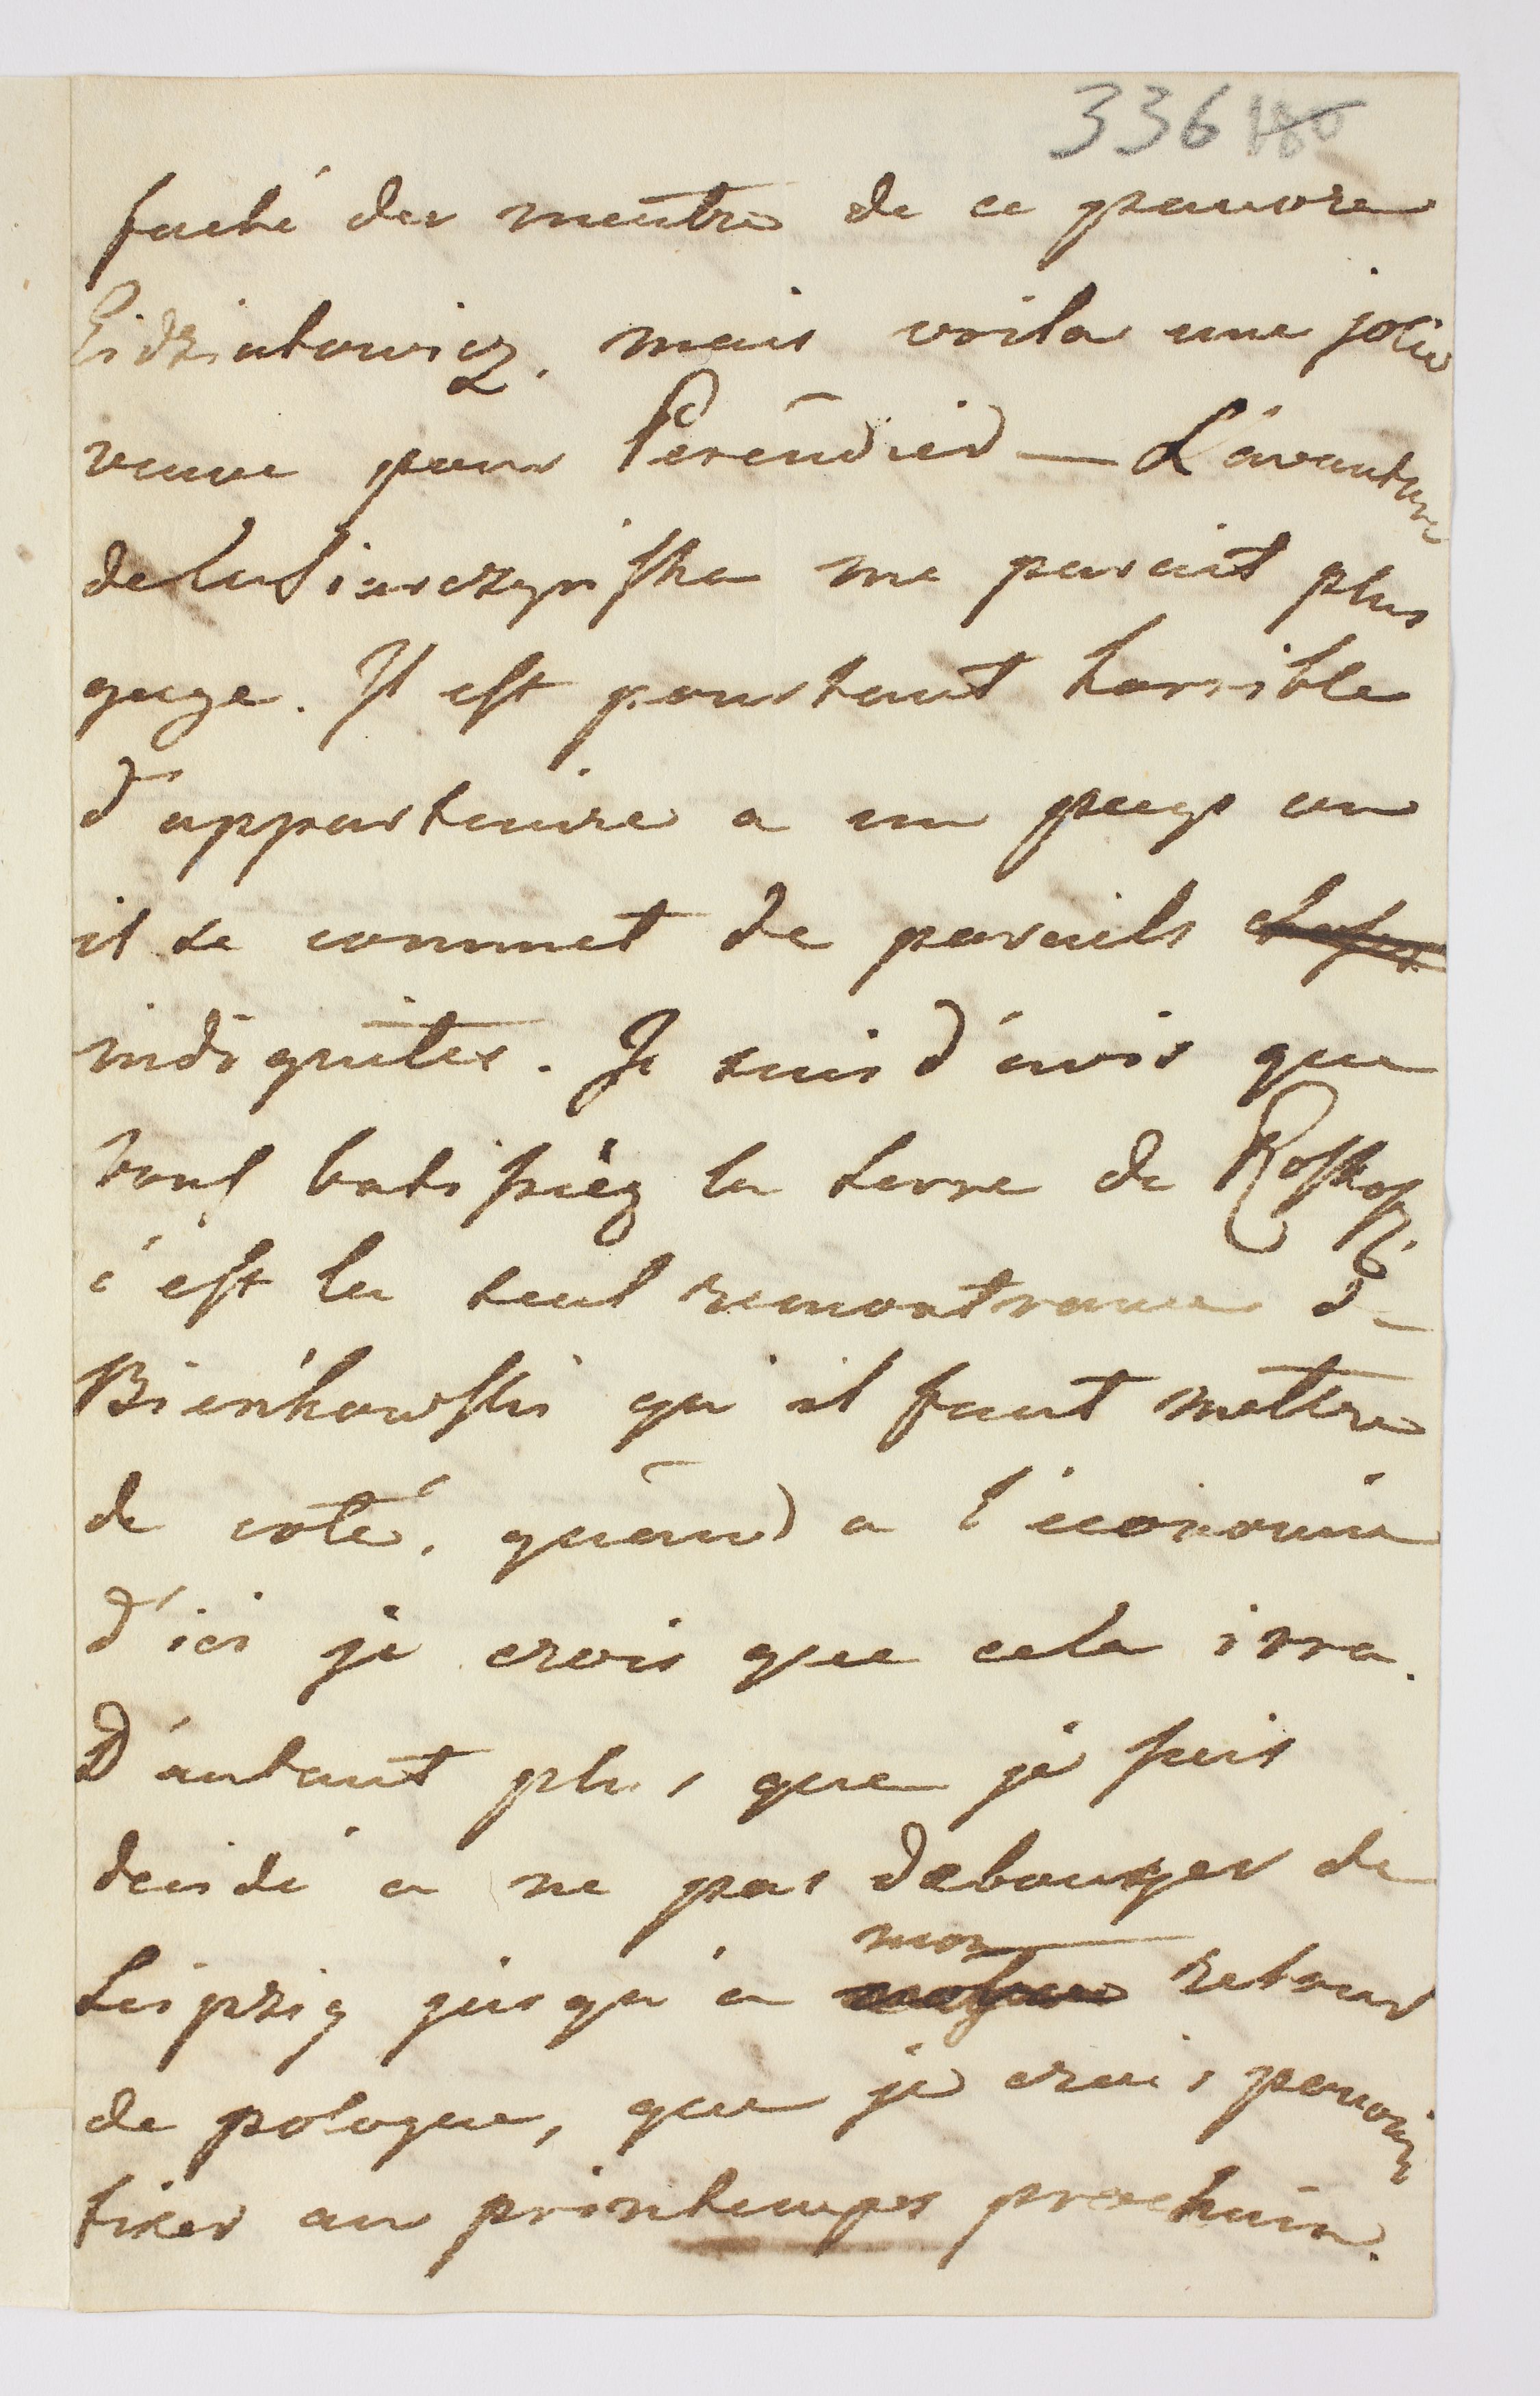 336 180
faché der meutre de ce pauvre
Eidziatowicz, mais voila une jolie
veuve pour — L'avanture
de me parait plus
gaye. Il est pourtant horrible
d'appartenire a un pays ou
il se commet de pareils
indignites. Je suis d'avis que
vous batissiéz la terre de
c'est la seul remontrance de
Bieńkowski qu'il faut mettre
de coté, quand a l'économie
d'ici je crois que cela irra.
D'autant plus que je suis
decidé a ne pas debouger de
Leipzig jusqu'a mon retour
de pologne, que je crois pouvoir
fixer au printemps prochain.